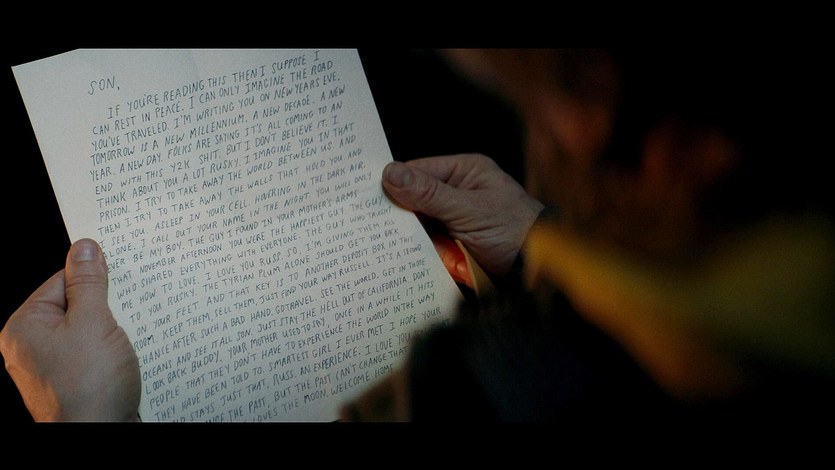 SON,
IF YOU'RE READING THIS THEN I SUPPOSE I
CAN REST IN PEACE. I CAN ONLY IMAGINE THE ROAD
YOU'VE TRAVELED. I'M WRITING YOU ON NEW YEARS EVE.
TOMORROW IS A NEW MILLENNIUM. A NEW DECADE. A NEW
YEAR. A NEW DAY. FOLKS ARE SAYING IT'S ALL COMING TO AN
END WITH THIS Y2K SHIT. BUT I DON'T BELIEVE IT. I
THINK ABOUT YOU A LOT RUSKY. I IMAGINE YOU IN THAT
PRISON. I TRY TO TAKE AWAY THE WORLD BETWEEN US. AND
THEN I TRY TO TAKE AWAY THE WALLS THAT HOLD YOU. AND
I SEE YOU ASLEEP IN YOUR CELL. HOVERING IN THE DARK AIR.
ALONE. I CALL OUT YOUR NAME IN THE NIGHT. YOU WILL ONLY
EVER BE MY BOY. THE GUY I FOUND IN YOUR MOTHER'S ARMS
THAT NOVEMBER AFTERNOON. YOU WERE THE HAPPIEST GUY. THE GUY
WHO SHARED EVERYTHING WITH EVERYONE. THE GUY WHO TAUGHT
ME HOW TO LOVE. I LOVE YOU RUSS. SO, I'M GIVING THEM ALL
TO YOU RUSKY. THE TYRIAN PLUM ALONE SHOULD GET YOU BACK
ON YOUR FEET. AND THAT KEY IS TO ANOTHER DEPOSIT BOX IN THE
ROOM. KEEP THEM, SELL THEM, JUST FIND YOUR WAY RUSSELL. IT'S A SECOND
CHANCE AFTER SUCH A BAD HAND. GO TRAVEL. SEE THE WORLD. GET IN THOSE
OCEANS AND SEE IT ALL SON. JUST STAY THE HELL OUT OF CALIFORNIA. DON'T
LOOK BACK BUDDY. YOUR MOTHER USED TO SAY, ONCE IN A WHILE IT HITS
PEOPLE THAT THEY DON'T HAVE TO EXPERIENCE THE WORLD IN THE WAY
THEY HAVE BEEN TOLD TO. SMARTEST GIRL I EVER MET. I HOPE YOUR
STAYS JUST THAT, RUSS. AN EXPERIENCE. I LOVE YOU
THE PAST, BUT THE PAST CAN'T CHANGE THAT
LOVES THE MOON. WELCOME HOME